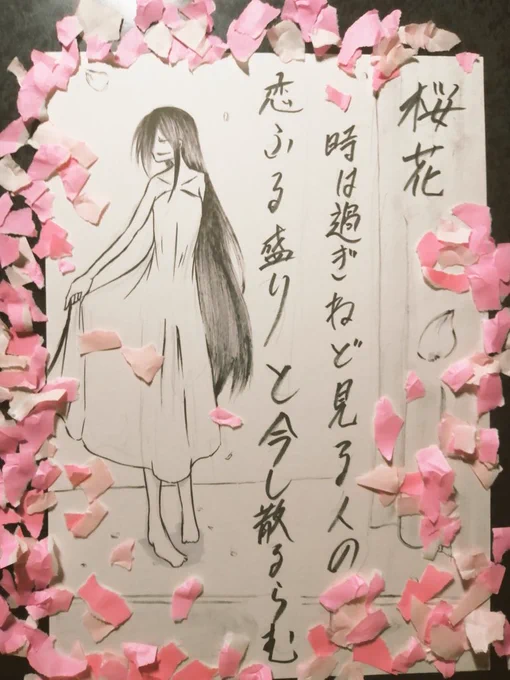 桜花
時は過ぎねど見る人の
恋ふる盛りと今し散るらむ